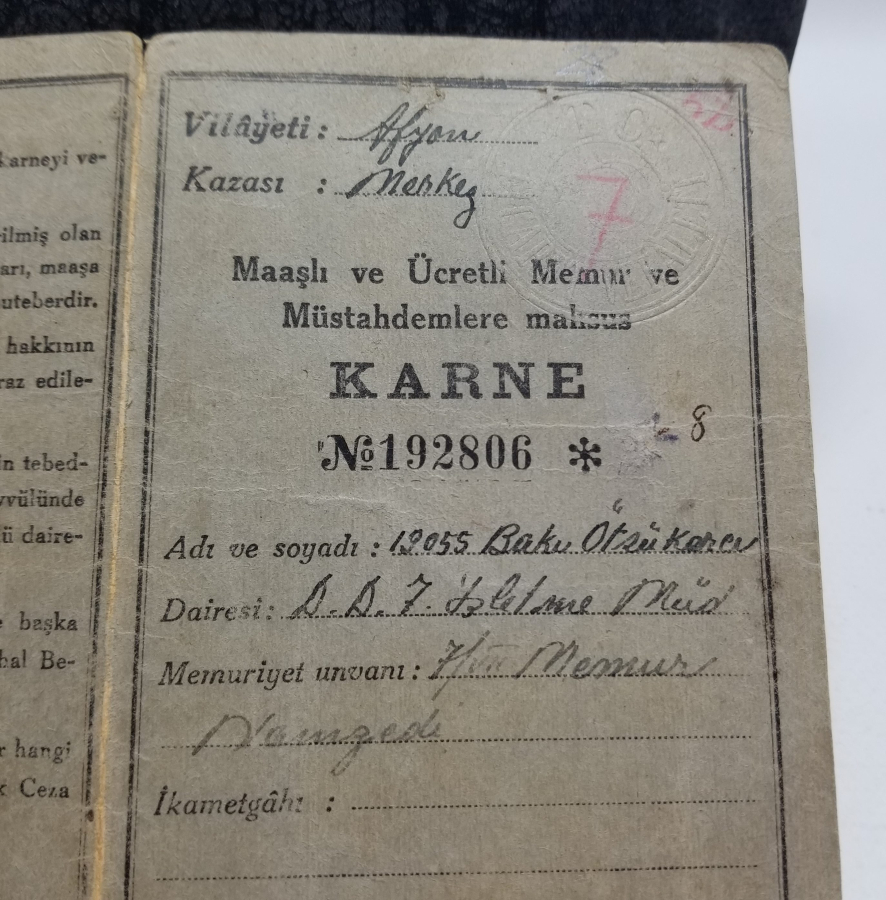 karneyi ve-
ilmiş olan
arı, maaşa
uteberdir.
hakkının
raz edile-
in tebed-
vvülünde
ü daire-
e başka
hal Be-
r hangi
k Ceza
Vilâyeti : Afyon
Kazası : Merkez
7
Maaşlı ve Ücretli Memur ve
Müstahdemlere mahsus
KARNE
8
№ 192806 *
Adı ve soyadı : 19055 Baku
Dairesi : D. D. 7. İşletme Müd
Memuriyet unvanı : Memur
Namzedi
İkametgâhı :